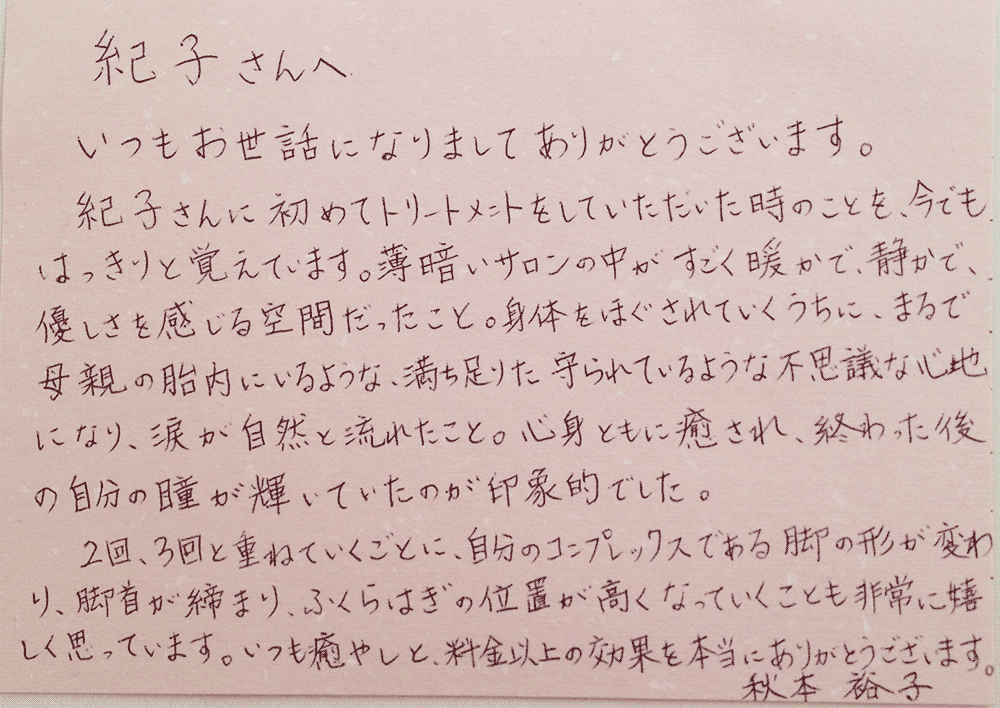 紀子さんへ
いつもお世話になりましてありがとうございます。
紀子さんに初めてトリートメントをしていただいた時のことを、今でも
はっきりと覚えています。薄暗いサロンの中がすごく暖かで、静かで、
優しさを感じる空間だったこと。身体をほぐされていくうちに、まるで
母親の胎内にいるような、満ち足りた守られているような不思議な心地
になり、涙が自然と流れたこと。心身ともに癒され、終わった後
の自分の瞳が輝いていたのが印象的でした。
2回、3回と重ねていくごとに、自分のコンプレックスである脚の形が変わ
り、脚首が締まり、ふくらはぎの位置が高くなっていくことも非常に嬉
しく思っています。いつも癒やしと、料金以上の効果を本当にありがとうございます。
秋本 裕子